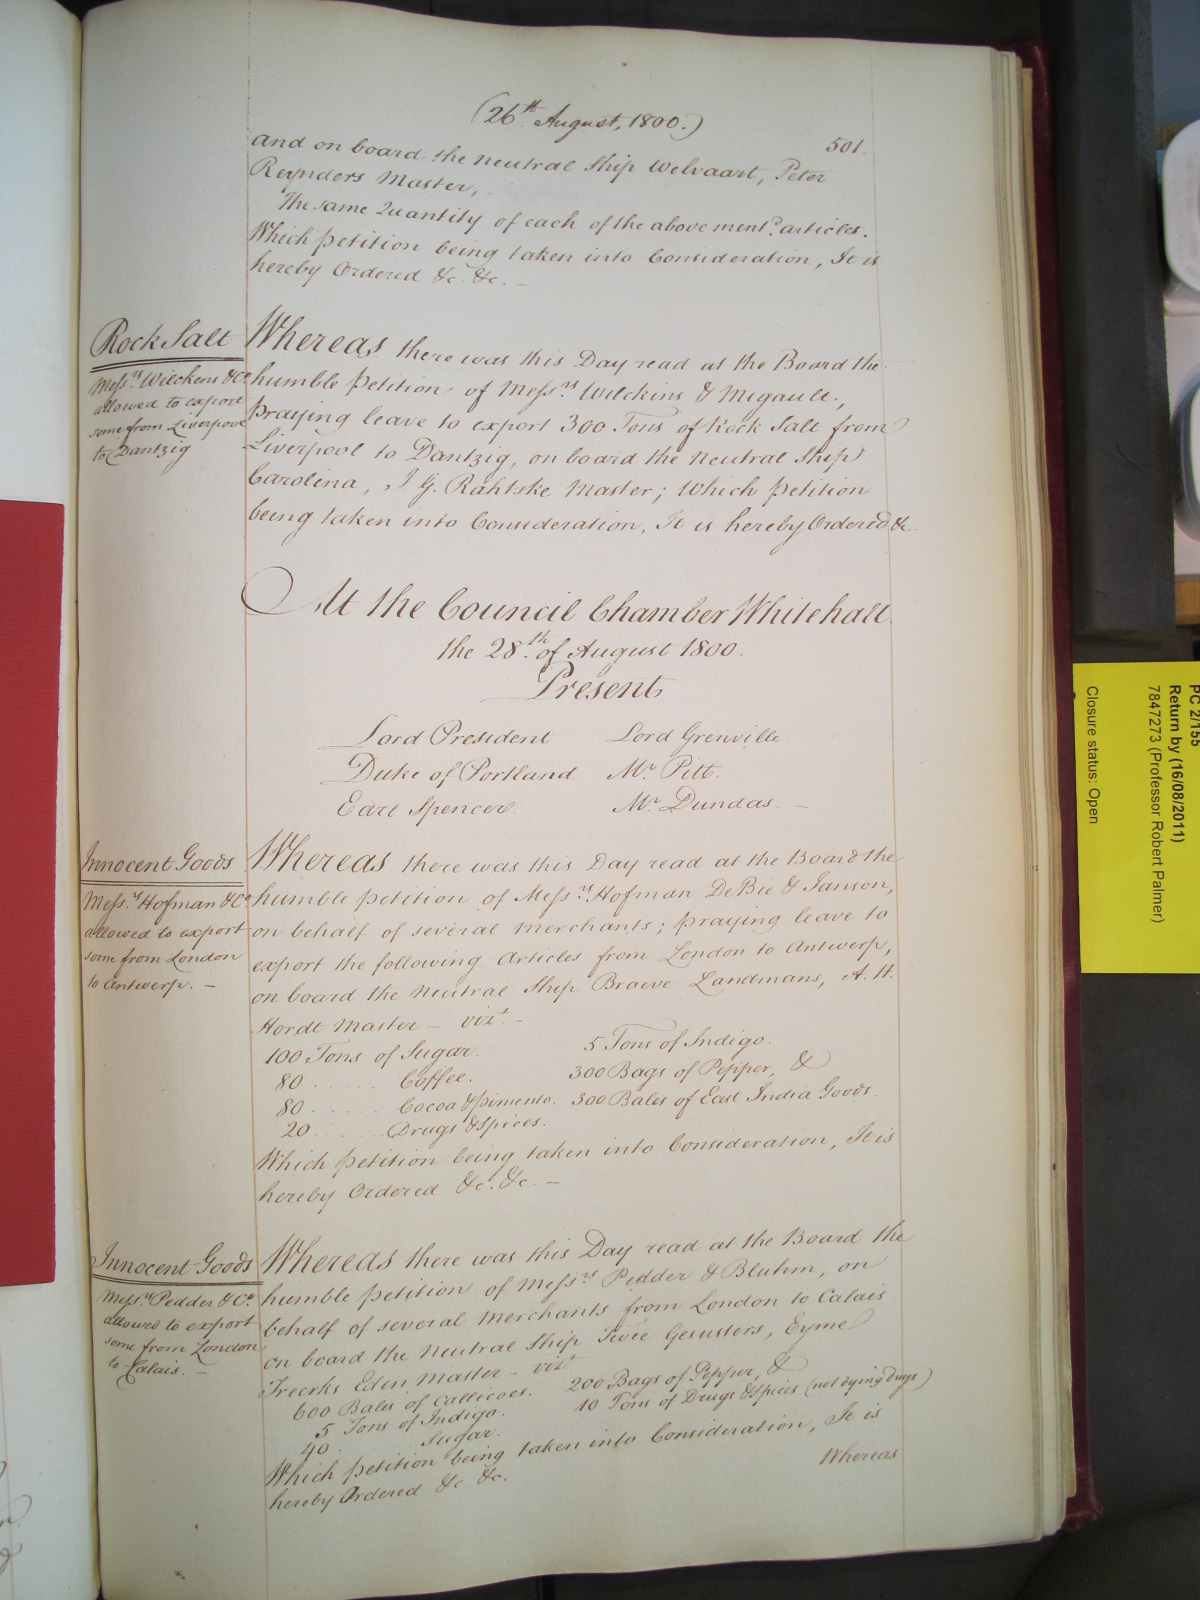 (26th August, 1800.)
501.
and on board the neutral Ship Welvaart, Peter
Reynders Master,
The same Quantity of each of the above mentd. articles.
Which petition being taken into Consideration, It is
hereby Ordered &c. &c. –
Rock Salt
Messrs Wilckens & Co.
allowed to export
some from Liverpool
to Dantzig
Whereas there was this Day read at the Board the
humble Petition of Messrs Wilckins & Migault,
praying leave to export 300 Tons of Rock Salt from
Liverpool to Dantzig, on board the Neutral Ship
Carolina, J G. Rahtske Master; Which Petition
being taken into Consideration, It is hereby Ordered &c.
At the Council Chamber Whitehall
the 28th of August 1800.
Present
Lord President Lord Grenville
Duke of Portland Mr. Pitt.
Earl Spencer. Mr. Dundas. –
Innocent Goods
Messrs Hofman & Co.
allowed to export
some from London
to Antwerp. –
Whereas there was this Day read at the Board the
humble petition of Messrs Hofman DeBie & Janson,
on behalf of several Merchants; praying leave to
export the following Articles from London to Antwerp,
on board the Neutral Ship Braeve Landmans, A. H.
Hordt Master – vizt. –
100 Tons of Sugar. 5 Tons of Indigo.
80 . . . . . . Coffee. 300 Bags of Pepper, &
80 . . . . . . Cocoa & Pimento. 300 Bales of East India Goods.
20 . . . . . . Drugs & Spices.
Which petition being taken into Consideration, It is
hereby Ordered &c. &c. –
Innocent Goods
Messrs Pedder & Co.
allowed to export
some from London
to Calais. –
Whereas there was this Day read at the Board the
humble petition of Messrs Pedder & Bluhm, on
behalf of several Merchants from London to Calais
on board the Neutral Ship Twee Gesusters, Eyme
Freerks Eden Master – vizt.
600 Bales of Callicoes. 200 Bags of Pepper, &
5 Tons of Indigo. 10 Tons of Drugs & Spices (not dying drugs)
40 . . . . . Sugar.
Which petition being taken into Consideration, It is
hereby Ordered &c. &c.
Whereas
PC 2/155
Return by (16/08/2011)
7847273 (Professor Robert Palmer)
Closure status: Open